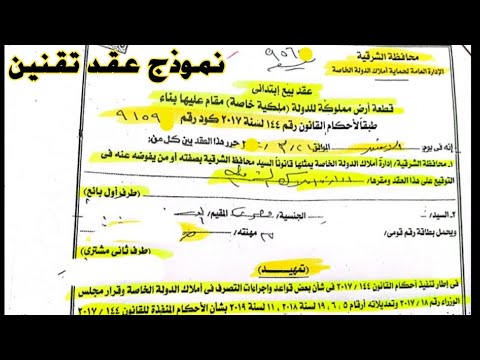 نموذج عقد تقنين
محافظة الشرقية
الإدارة العامة لحماية أملاك الدولة الخاصة
عقد بيع إبتدائى
قطعة أرض مملوكة للدولة (ملكية خاصة) مقام عليها بناء
طبقاً لأحكام القانون رقم ١٤٤ لسنة ٢٠١٧ كود رقم ٩١٥٩
إنه فى يوم الموافق ٣/٢١ حرر هذا العقد بين كل من:
١ـ محافظة الشرقية/ إدارة أملاك الدولة الخاصة يمثلها قانوناً السيد محافظ الشرقية بصفته أو من يفوضه عنه فى
التوقيع على هذا العقد ومقرها/
(طرف أول بائع)
٢ـ السيد/ الجنسية/ المقيم/
ويحمل بطاقة رقم قومى/ مهنته/
(طرف ثانى مشترى)
(تمهيد)
فى إطار تنفيذ أحكام القانون ٢٠١٧/١٤٤ فى شأن بعض قواعد وإجراءات التصرف فى أملاك الدولة الخاصة وقرار مجلس
الوزراء رقم ٢٠١٧/١٨ وتعديلاته أرقام ٥ ، ٦ ، ١٩ لسنة ٢٠١٨ ، ١١ لسنة ٢٠١٩ بشأن الأحكام المنفذة للقانون ٢٠١٧/١٤٤